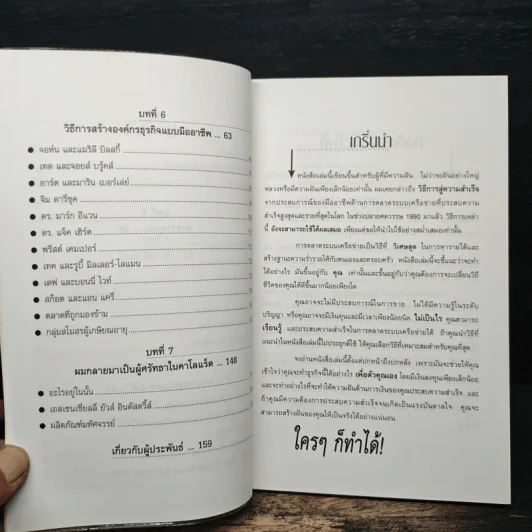 บทที่ 6
วิธีการสร้างองค์กรธุรกิจแบบมืออาชีพ ... 63
จอห์น และแมรีลี บิลสกี้
เทด และจอยส์ บรู้คส์
อาร์ต และมาริน เบอร์เล่ย์
จิม ดารี่ซุค
ดร. มาร์ก อีแวน
ดร. แจ็ค เฮิร์ด
พรีสต์ เคมเปอร์
เทด และรูบี้ มิลเลอร์-โลแมน
เดฟ และบอนนี่ ไวท์
สก็อต และแอน แครี่
ตลาดที่ถูกมองข้าม
กลุ่มสโมสรผู้เกษียณอายุ
บทที่ 7
ผมกลายมาเป็นผู้ศรัทธาในคาโลแว็ด ... 148
อะไรอยู่ในนั้น
เอสเซนเชียลลี่ ยัวส์ อินดัสตรี้ส์
ผลิตภัณฑ์มหัศจรรย์
เกี่ยวกับผู้ประพันธ์ ... 159
เกริ่นนำ
หนังสือเล่มนี้เขียนขึ้นสำหรับผู้ที่มีความฝัน ไม่ว่าจะฝันอย่างใหญ่
หลวงหรือมีความฝันเพียงเล็กน้อยเท่านั้น ผมเคยกล่าวถึง วิธีการสู่ความสำเร็จ
จากประสบการณ์ของมืออาชีพด้านการตลาดระบบเครือข่ายที่ประสบความ
สำเร็จสูงสุดและรวยที่สุดในโลก ในช่วงปลายศตวรรษ 1990 มาแล้ว วิธีการเหล่า
นี้ ยังจะสามารถใช้ได้ผลเสมอ เพียงแต่ขอให้นำไปใช้อย่างสม่ำเสมอเท่านั้น
การตลาดระบบเครือข่ายเป็นวิธีที่ วิเศษสุด ในการหารายได้และ
สร้างฐานะความร่ำรวยให้กับตนเองและครอบครัว หนังสือเล่มนี้จะชี้แนะว่าจะทำ
ได้อย่างไร มันขึ้นอยู่กับ คุณ เท่านั้นและขึ้นอยู่กับว่าคุณต้องการจะเปลี่ยนวิถี
ชีวิตของคุณให้ดีขึ้นมากน้อยเพียงใด
คุณอาจจะไม่มีประสบการณ์ในการขาย ไม่ได้มีความรู้ในระดับ
ปริญญา หรือคุณอาจจะมีเงินทุนและมีเวลาเพียงน้อยนิด ไม่เป็นไร คุณสามารถ
เรียนรู้ และประสบความสำเร็จในการตลาดระบบเครือข่ายได้ ถ้าคุณนำวิธีที่
แนะนำในหนังสือเล่มนี้ไปประยุกต์ ใช้ ให้คุณเลือกวิธีที่เหมาะสมสำหรับคุณที่สุด
จงอ่านหนังสือเล่มนี้ตั้งแต่ปกหน้าถึงปกหลัง เพราะมันจะช่วยให้คุณ
เข้าใจว่าคุณจะทำธุรกิจนี้ได้อย่างไร เพื่อตัวคุณเอง โดยมีเงินลงทุนเพียงเล็กน้อย
และจะทำอย่างไรที่จะทำให้ความฝันด้านการเงินของคุณประสบความสำเร็จ และ
ถ้าคุณมีความต้องการประสบความสำเร็จจนเกิดเป็นแรงบันดาลใจ คุณจะ
สามารถสร้างฝันของคุณให้เป็นจริงได้อย่างแน่นอน
ใครๆ ก็ทำได้!